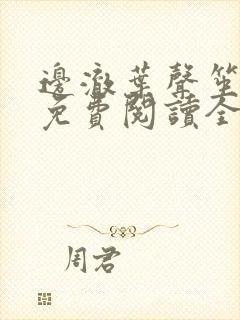 邊澈葉聲笙
免費閱讀全
周君